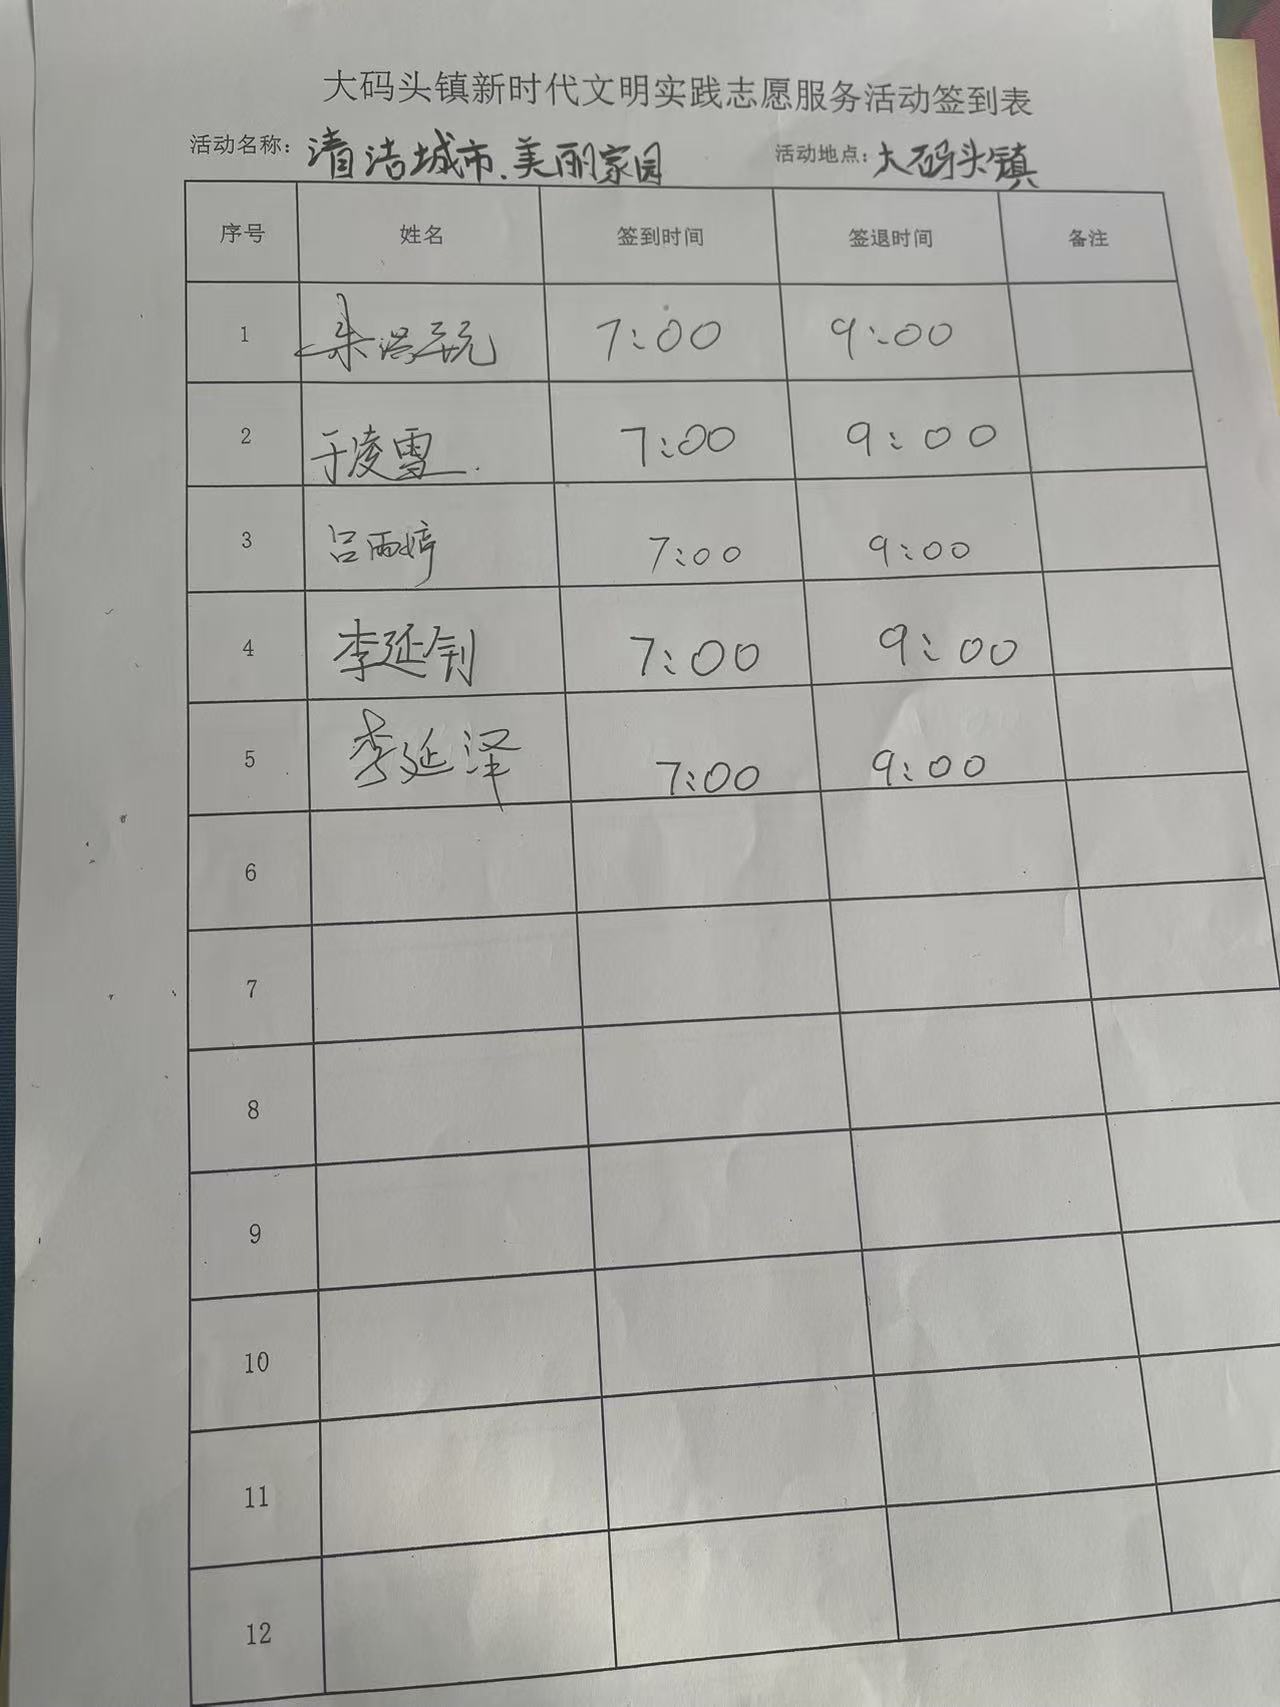 大码头镇新时代文明实践志愿服务活动签到表
活动名称：清洁城市.美丽家园 活动地点：大码头镇
序号 姓名 签到时间 签退时间 备注
1 朱 7:00 9:00
2 于凌雪 7:00 9:00
3 吕雨婷 7:00 9:00
4 李延钊 7:00 9:00
5 李延泽 7:00 9:00
6
7
8
9
10
11
12